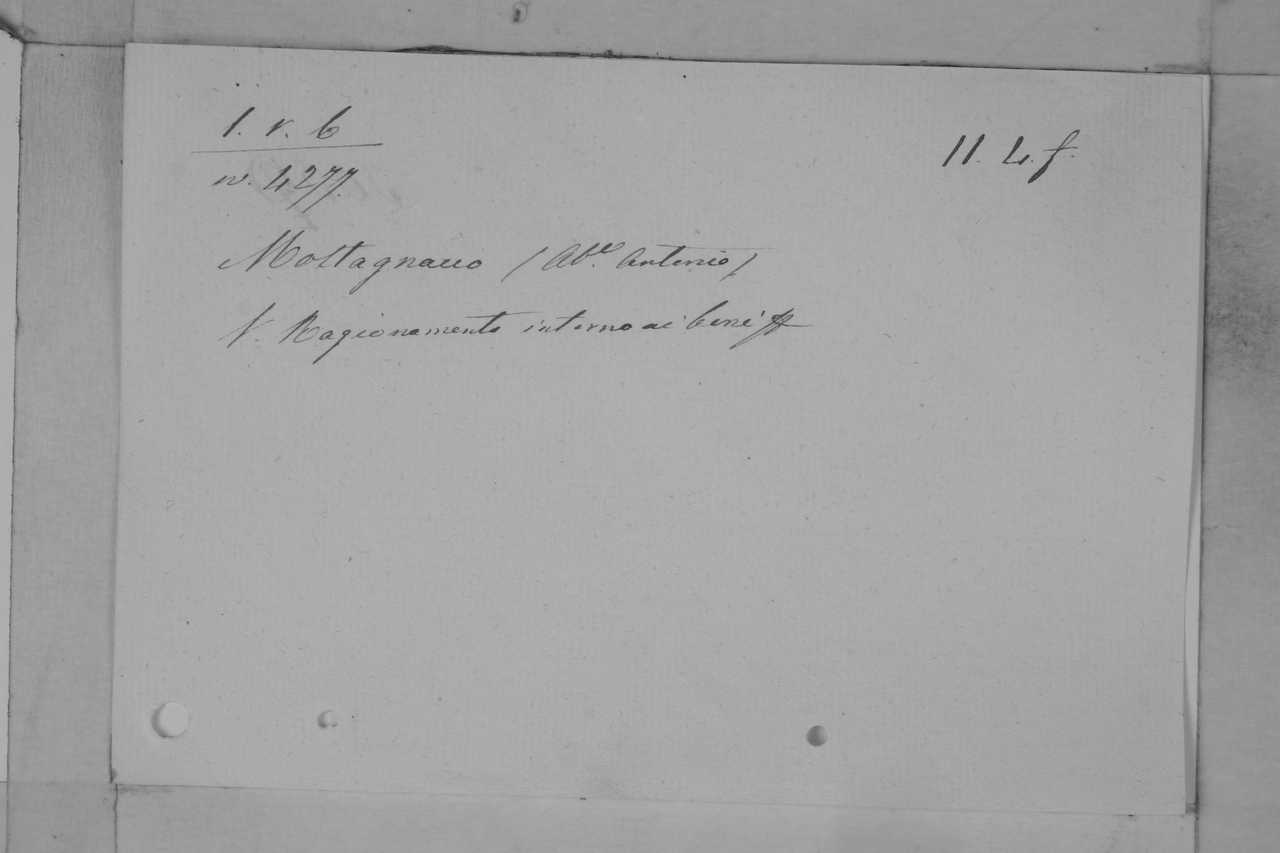 1. v. 6
n. 4277.
11. 4. f.
Mottagnacco (Ab.e Antonio)
V. Ragionamento intorno ai beni